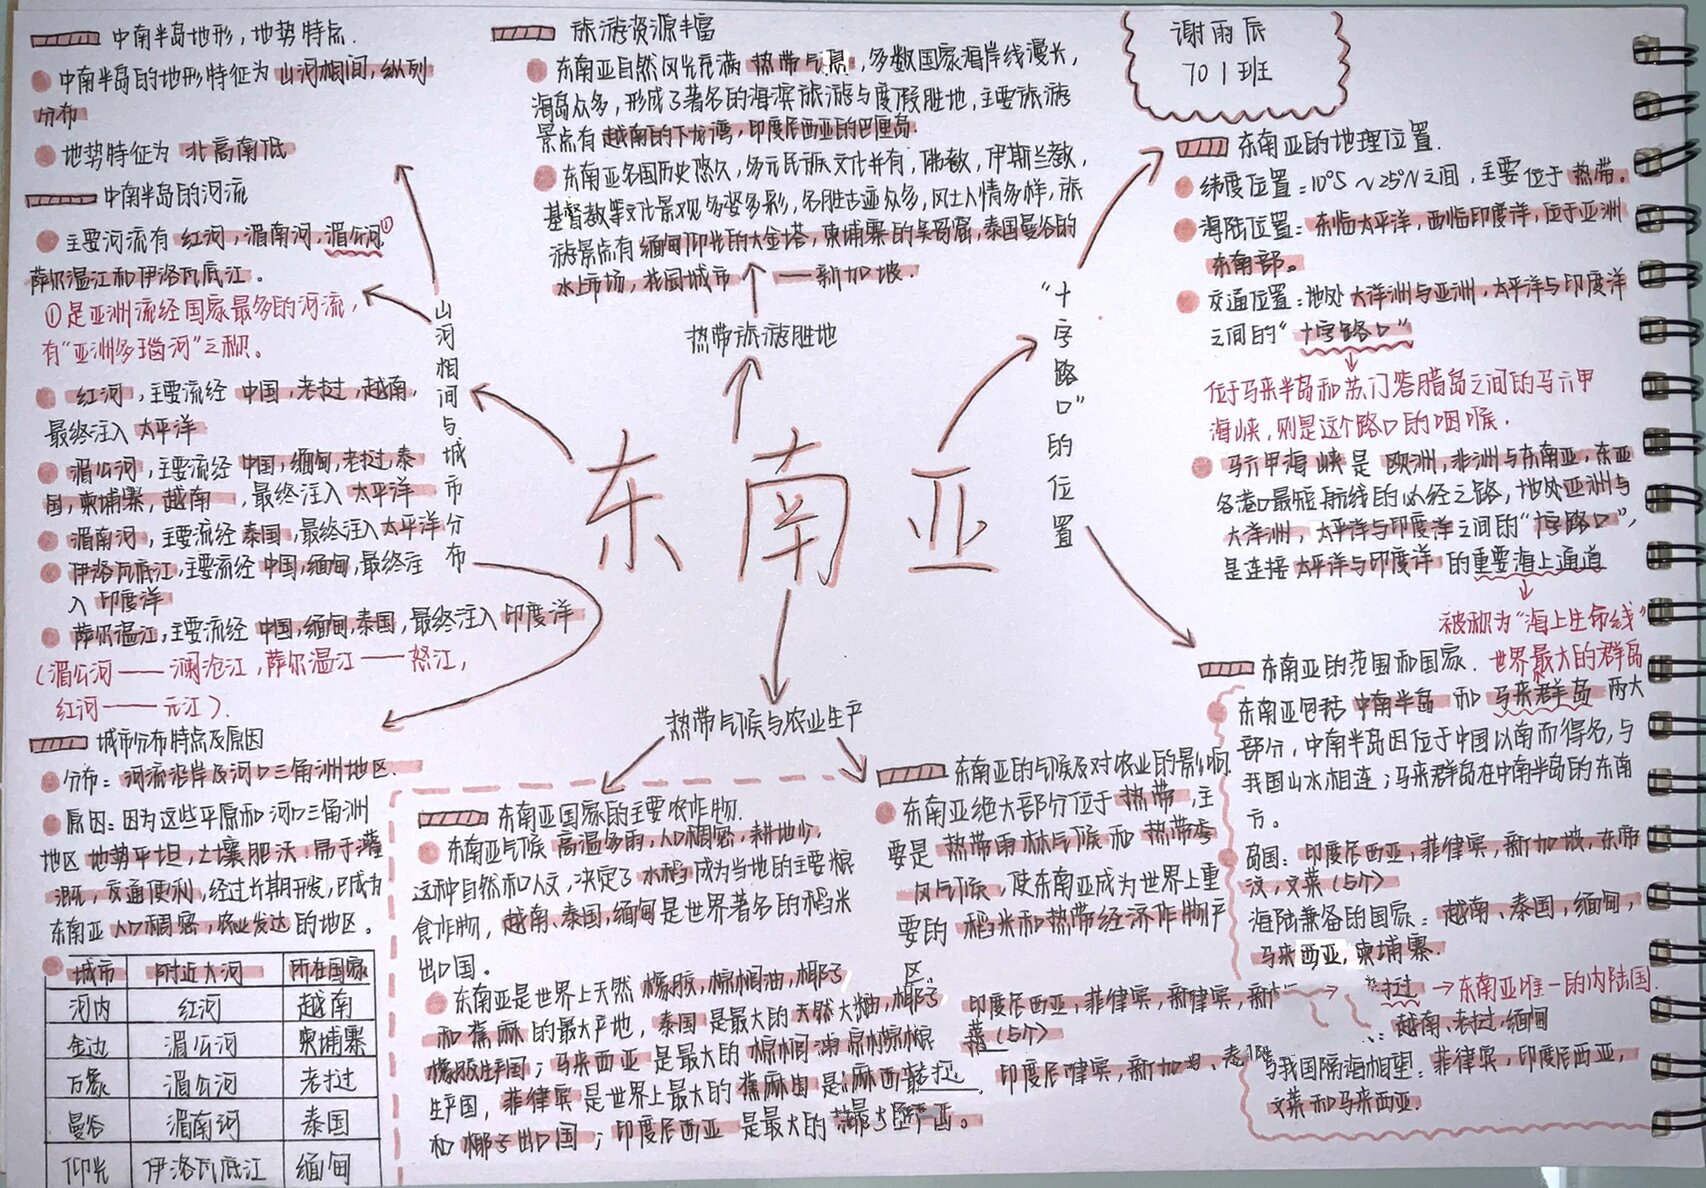 谢雨辰
701班
东南亚
山河相间与城市分布
中南半岛地形,地势特点.
中南半岛的地形特征为 山河相间,纵列
分布
地势特征为 北高南低
中南半岛的河流
主要河流有 红河,湄南河,湄公河①
萨尔温江和伊洛瓦底江。
①是亚洲流经国家最多的河流,
有“亚洲多瑙河”之称。
红河,主要流经 中国,老挝,越南,
最终注入 太平洋
湄公河,主要流经 中国,缅甸,老挝,泰
国,柬埔寨,越南,最终注入 太平洋
湄南河,主要流经泰国,最终注入太平洋
伊洛瓦底江,主要流经中国,缅甸,最终注
入 印度洋
萨尔温江,主要流经 中国,缅甸,泰国,最终注入 印度洋
(湄公河——澜沧江,萨尔温江——怒江,
红河——元江).
城市分布特点及原因
分布:河流沿岸及河口三角洲地区.
原因:因为这些平原和河口三角洲
地区 地势平坦,土壤肥沃.易于灌
溉,交通便利,经过长期开发,已成为
东南亚 人口稠密,农业发达的地区。
城市 附近大河 所在国家
河内 红河 越南
金边 湄公河 柬埔寨
万象 湄公河 老挝
曼谷 湄南河 泰国
仰光 伊洛瓦底江 缅甸
旅游资源丰富
东南亚自然风光充满 热带气息,多数国家海岸线漫长,
海岛众多,形成了著名的海滨旅游与度假胜地,主要旅游
景点有 越南的下龙湾,印度尼西亚的巴厘岛.
东南亚各国历史悠久,多元民族文化并有,佛教,伊斯兰教,
基督教等文化景观多姿多彩,名胜古迹众多,风土人情多样,旅
游景点有 缅甸仰光的大金塔,柬埔寨的吴哥窟,泰国曼谷的
水上市场,花园城市——新加坡.
热带旅游胜地
“十字路口”的位置
东南亚的地理位置.
纬度位置:10°S~25°N之间,主要位于 热带。
海陆位置:东临太平洋,西临印度洋,位于亚洲
东南部。
交通位置:地处大洋洲与亚洲,太平洋与印度洋
之间的“十字路口”
位于马来半岛和苏门答腊岛之间的马六甲
海峡,则是这个路口的咽喉.
马六甲海峡是 欧洲,非洲与东南亚,东亚
各港口最短航线的必经之路,地处亚洲与
大洋洲,太平洋与印度洋之间的“十字路口”,
是连接 太平洋与印度洋 的重要海上通道
被称为“海上生命线”
东南亚的范围和国家. 世界最大的群岛
东南亚包括 中南半岛 和 马来群岛 两大
部分,中南半岛因位于中国以南而得名,与
我国山水相连;马来群岛在中南半岛的东南
方。
岛国:印度尼西亚,菲律宾,新加坡,东帝
汶,文莱(5个)
海陆兼备的国家:越南、泰国,缅甸,
马来西亚,柬埔寨.
→东南亚唯一的内陆国.
:越南,老挝,缅甸
与我国隔海相望:菲律宾,印度尼西亚,
文莱和马来西亚.
热带气候与农业生产
东南亚国家的主要农作物.
东南亚气候 高温多雨,人口稠密,耕地少,
这种自然和人文,决定了 水稻成为当地的主要粮
食作物,越南、泰国,缅甸是世界著名的稻米
出口国。
东南亚是世界上天然 橡胶,棕榈油,椰子
和 蕉麻 的最大产地,泰国是最大的 天然
橡胶生产国;马来西亚 是最大的 棕榈油
生产国,菲律宾 是世界上最大的 蕉麻
和 椰子出口国;印度尼西亚 是最大的
东南亚的气候及对农业的影响
东南亚绝大部分位于 热带,主
要是 热带雨林气候 和 热带季
风气候,使东南亚成为世界上重
要的 稻米和热带经济作物产
区
印度尼西亚,菲律宾,
(5个)